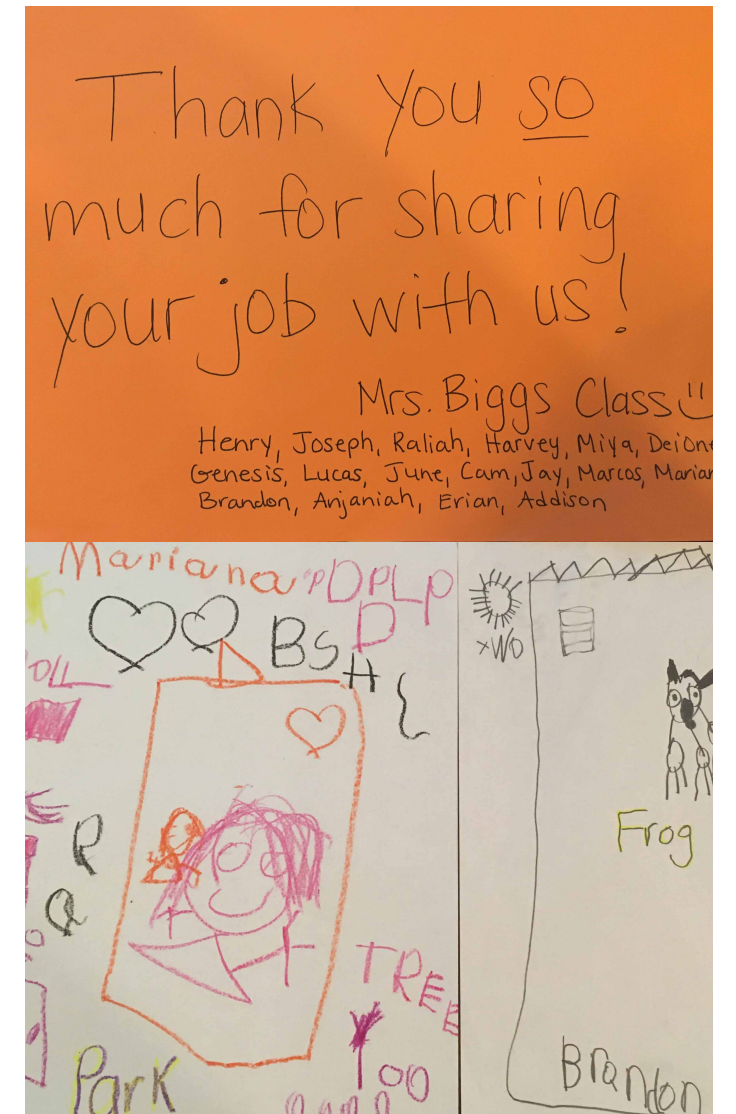 Thank you so
much for sharing
your job with us!
Mrs. Biggs Class
Henry, Joseph, Raliah, Harvey, Miya, Deion
Genesis, Lucas, June, Cam, Jay, Marcos, Marian
Brandon, Anjaniah, Erian, Addison
Mariana PDPLP
D
BS
H
OLL
P
TREE
Park
OO
xWO
Frog
Brandon